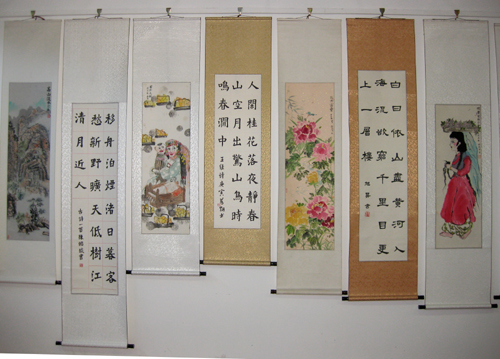 移舟泊煙渚日暮客
愁新野曠天低樹江
清月近人
人閒桂花落夜靜春
山空月出驚山鳥時
鳴春澗中
王維詩庚寅
白日依山盡黃河入
海流欲窮千里目更
上一層樓